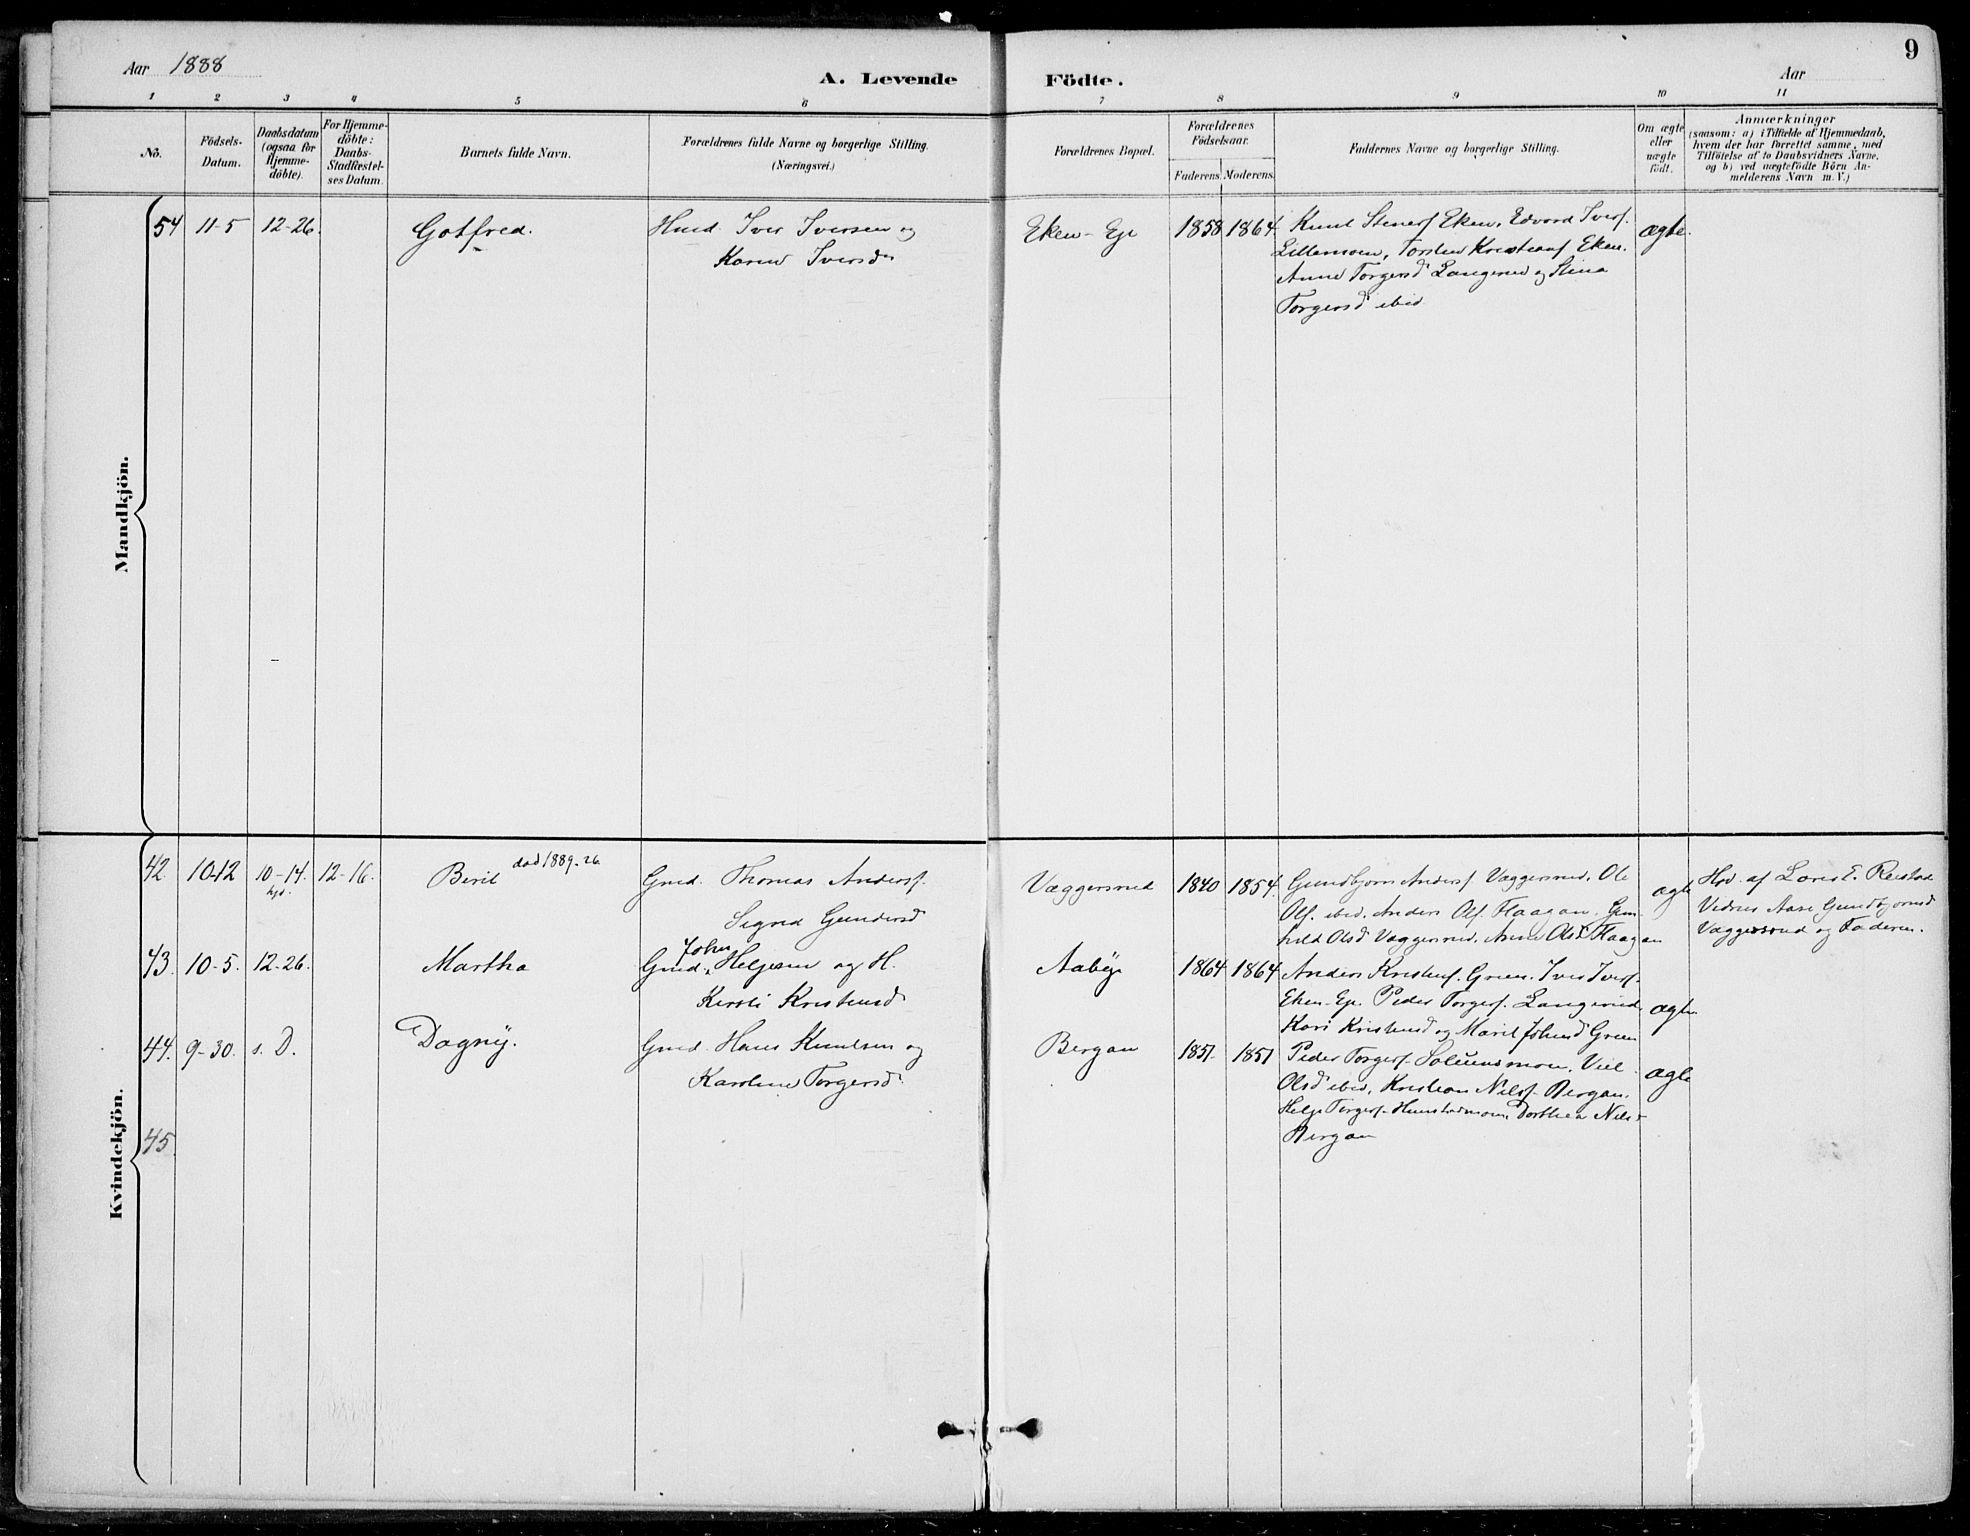 Aar 1888
A. Levende Födte.
Aar
9
1 2 3 4 5 6 7 8 9 10 11
No.
Födsels-
Datum.
Daabsdatum
(ogsaa for
Hjemme-
döbte).
For Hjemme-
döbte:
Daabs-
Stadfæstel-
ses Datum.
Barnets fulde Navn.
Forældrenes fulde Navne og borgerlige Stilling.
(Næringsvei.)
Forældrenes Bopæl.
Forældrenes
Födselsaar.
Faderens. Moderens.
Faddernes Navne og borgerlige Stilling.
Om ægte
eller
uægte
födt.
Anmærkninger
(saasom: a) i Tilfælde af Hjemmedaab,
hvem der har forrettet samme, med
Tilföielse af to Daabsvidners Navne,
og b) ved uægtefödte Börn An-
melderens Navn m. V.)
Mandkjön.
54 11-5 12-26. Gotfred. Husd Iver Iversen og
Karen Iversd.
Eken-Eje 1858 1864. Knut Stenersf Eken, Edvard Iversf.
Lillemoen, Torsten Kristiansf Eken.
Anne Torgersd Langerud og Stina
Torgersd ibid
ægte.
Kvindekjön.
42 10-12 10-14. hjd. 12-16. Beril død 1889-26 Gmd. Thomas Andersf.
Sigrid Gundersd
Væggersrud 1840 1854. Gundbjørn Andersf Væggersrud, Ole
Olf. ibid. Anders Olf. Flaagan. Gun-
hild Olsd Væggersrud, Anne Olsd Flaagan
ægte
Hjd. af Lars E. Reistad
Vidner Aase Gundbjørnsd
Væggersrud og Faderen.
43. 10-5. 12-26. Martha Gmd. John Helgesen og H.
Kirsti Kristensd
Aabøge 1864 1864 Anders Kristensf. Green. Iver Iversf.
Eken-Eje. Peder Torgersf. Langerud.
Kari Kristensd og Marit Johnsd Green
ægte
44. 9-30. s. D. Dagny. Gmd. Hans Knudsen og
Karoline Torgersd.
Bergan 1851. 1851 Peder Torgersf. Moen,
Olsd ibid, Kristian Nilsf. Bergan.
Helge Torgersf. Dorthea Nilsd
Bergan
ægte
45